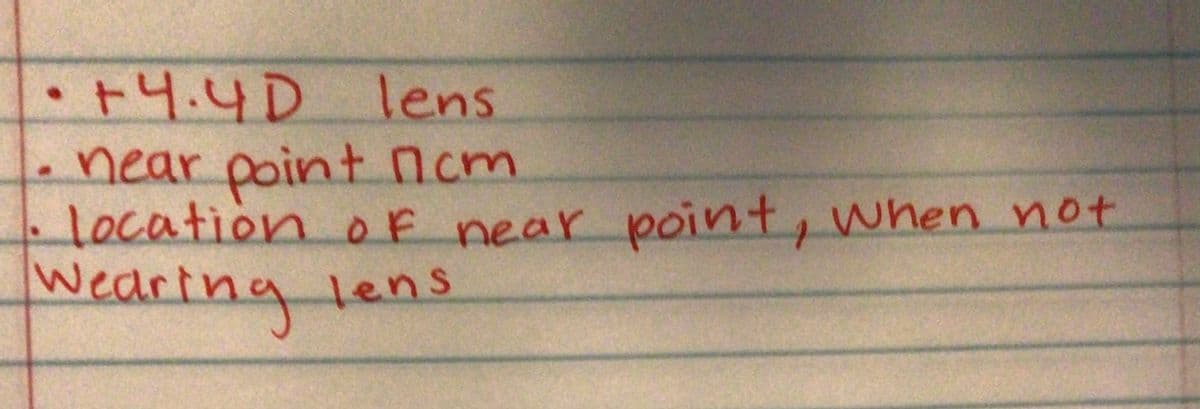 • +4.4D lens
• near point ncm
• location of near point, when not
Wearing lens